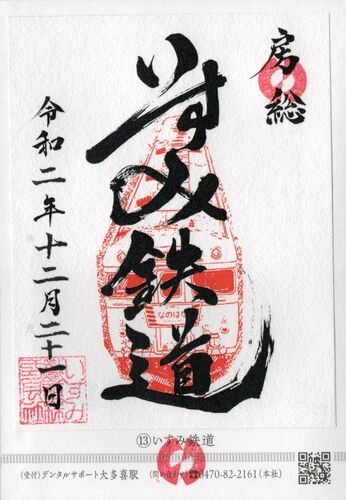 房総
いすみ鉄道
なのはな
令和二年十二月二十一日
⑬いすみ鉄道
〈受付〉デンタルサポート大多喜駅 〈問い合わせ〉☎0470-82-2161(本社)